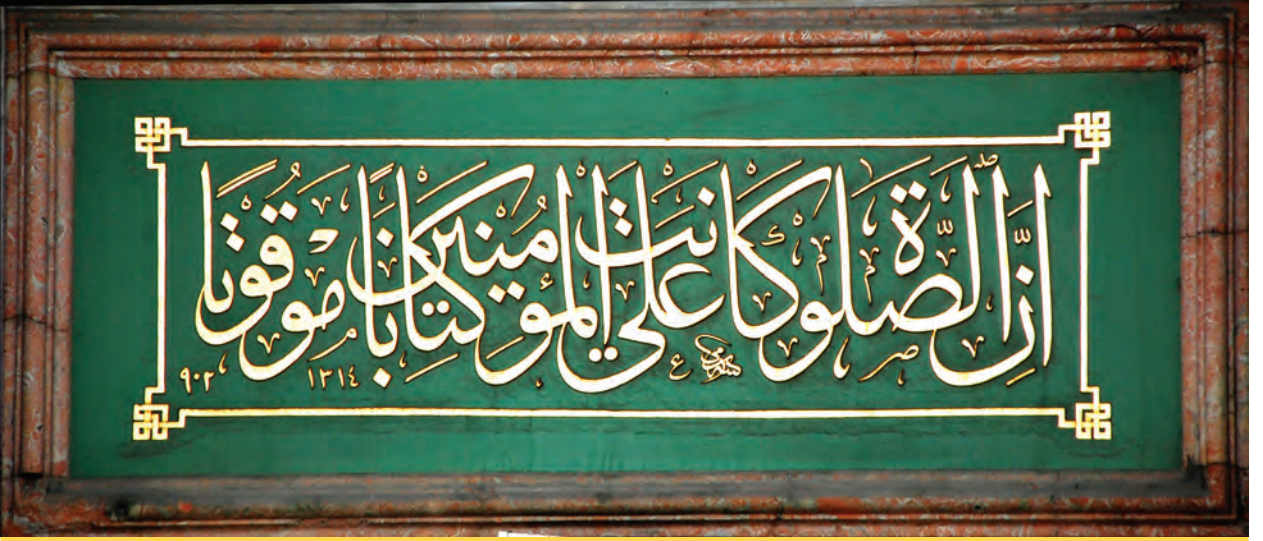 اِنَّ الصَّلٰوةَ كَانَتْ عَلَى الْمُؤْمِنٖينَ كِتَاباً مَوْقُوتاً
١٣١٤
٩٠٢